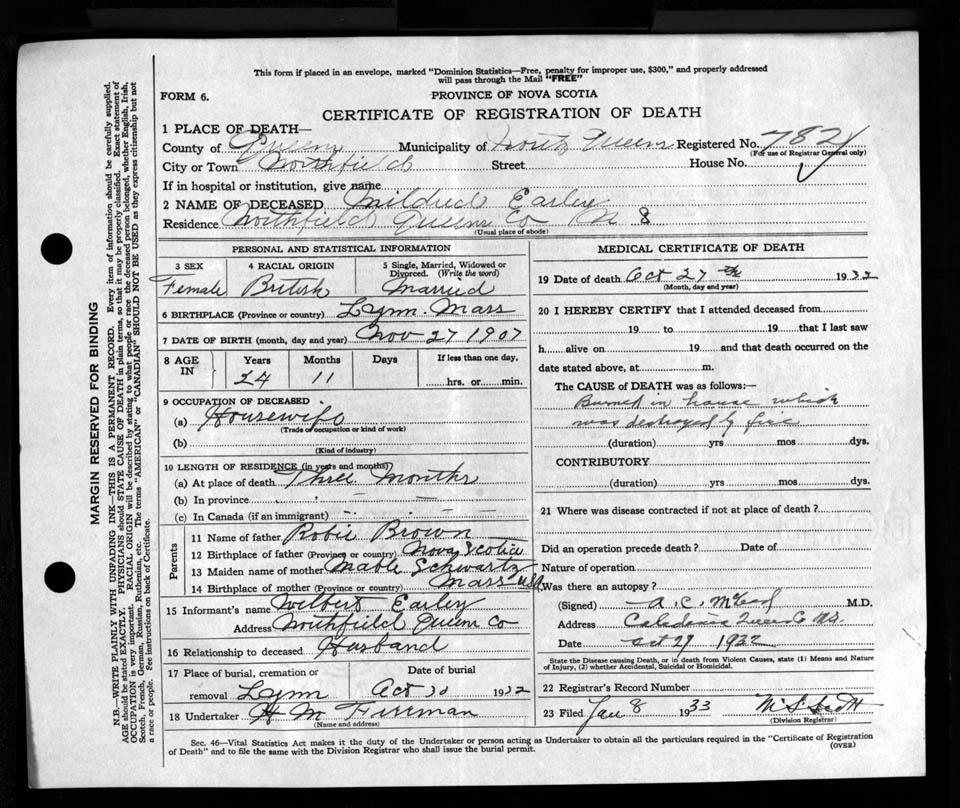 This form if placed in an envelope, marked "Dominion Statistics—Free, penalty for improper use, $300," and properly addressed
will pass through the Mail "FREE"
FORM 6.
PROVINCE OF NOVA SCOTIA
CERTIFICATE OF REGISTRATION OF DEATH
1 PLACE OF DEATH—
County of Queens Municipality of North Queens Registered No. 7874
(For use of Registrar General only)
City or Town Northfield Street House No.
If in hospital or institution, give name
2 NAME OF DECEASED Mildred Earley
Residence Northfield Queens Co N S
(Usual place of abode)
PERSONAL AND STATISTICAL INFORMATION
3 SEX
Female
4 RACIAL ORIGIN
British
5 Single, Married, Widowed or
Divorced. (Write the word)
Married
6 BIRTHPLACE (Province or country) Lynn. Mass
7 DATE OF BIRTH (month, day and year) Nov 27 1907
8 AGE
IN
Years
24
Months
11
Days
If less than one day,
hrs. or min.
9 OCCUPATION OF DECEASED
(a) Housewife
(Trade or occupation or kind of work)
(b)
(Kind of industry)
10 LENGTH OF RESIDENCE (in years and months)
(a) At place of death Three months
(b) In province
(c) In Canada (if an immigrant)
Parents
11 Name of father Robie Brown
12 Birthplace of father (Province or country) Nova Scotia
13 Maiden name of mother Mable Schwartz
14 Birthplace of mother (Province or country) Mass USA
15 Informant's name Wilbert Earley
Address Northfield Queens Co
16 Relationship to deceased Husband
17 Place of burial, cremation or
removal Lynn
Date of burial
Oct 30 1932
18 Undertaker H M Freeman
(Name and address)
MEDICAL CERTIFICATE OF DEATH
19 Date of death Oct 27th 1932
(Month, day and year)
20 I HEREBY CERTIFY that I attended deceased from
19 to 19 that I last saw
h alive on 19 and that death occurred on the
date stated above, at m.
The CAUSE of DEATH was as follows:—
Burned in house which
was destroyed by fire
(duration) yrs mos dys.
CONTRIBUTORY
(duration) yrs mos dys.
21 Where was disease contracted if not at place of death?
Did an operation precede death? Date of
Nature of operation
Was there an autopsy?
(Signed) A. C. M.D.
Address Caledonia Queens Co N.S.
Date Oct 29 1932
State the Disease causing Death, or in death from Violent Causes, state (1) Means and Nature
of Injury, (2) whether Accidental, Suicidal or Homicidal.
22 Registrar's Record Number
23 Filed Jan 8 1933
(Division Registrar)
Sec. 46—Vital Statistics Act makes it the duty of the Undertaker or person acting as Undertaker to obtain all the particulars required in the "Certificate of Registration
of Death" and to file the same with the Division Registrar who shall issue the burial permit.
(OVER)
MARGIN RESERVED FOR BINDING
N.B.—WRITE PLAINLY WITH UNFADING INK—THIS IS A PERMANENT RECORD. Every item of information should be carefully supplied.
AGE should be stated EXACTLY. PHYSICIANS should STATE CAUSE OF DEATH in plain terms, so that it may be properly classified. Exact statement of
OCCUPATION is very important. RACIAL ORIGIN will be described by stating to what people or race the deceased person belonged, whether English, Irish,
Scotch, French, German, Russian, Ruthenian, etc. The terms "AMERICAN" or "CANADIAN" SHOULD NOT BE USED as they express citizenship but not
a race or people. See instructions on back of Certificate.